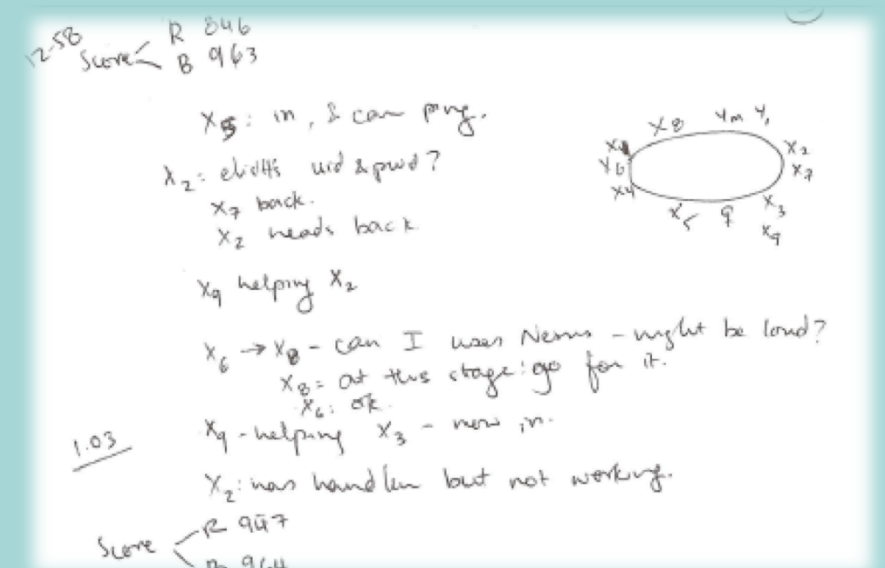 12.58
Score R 846
B 963
X5: in, & can ping.
X2: elidH's uid & pwd?
X7 back.
X2 heads back
X9 helping X2
X6 → X8 - can I user Nessus - might be loud?
X8: at this stage: go for it.
X6: ok.
1.03
X9 - helping X3 - now in.
X2: has handler but not working.
Score R 947
B 964
X8 Ym Y1
X2
Y6 X7
X4
X5 9 X3
X9